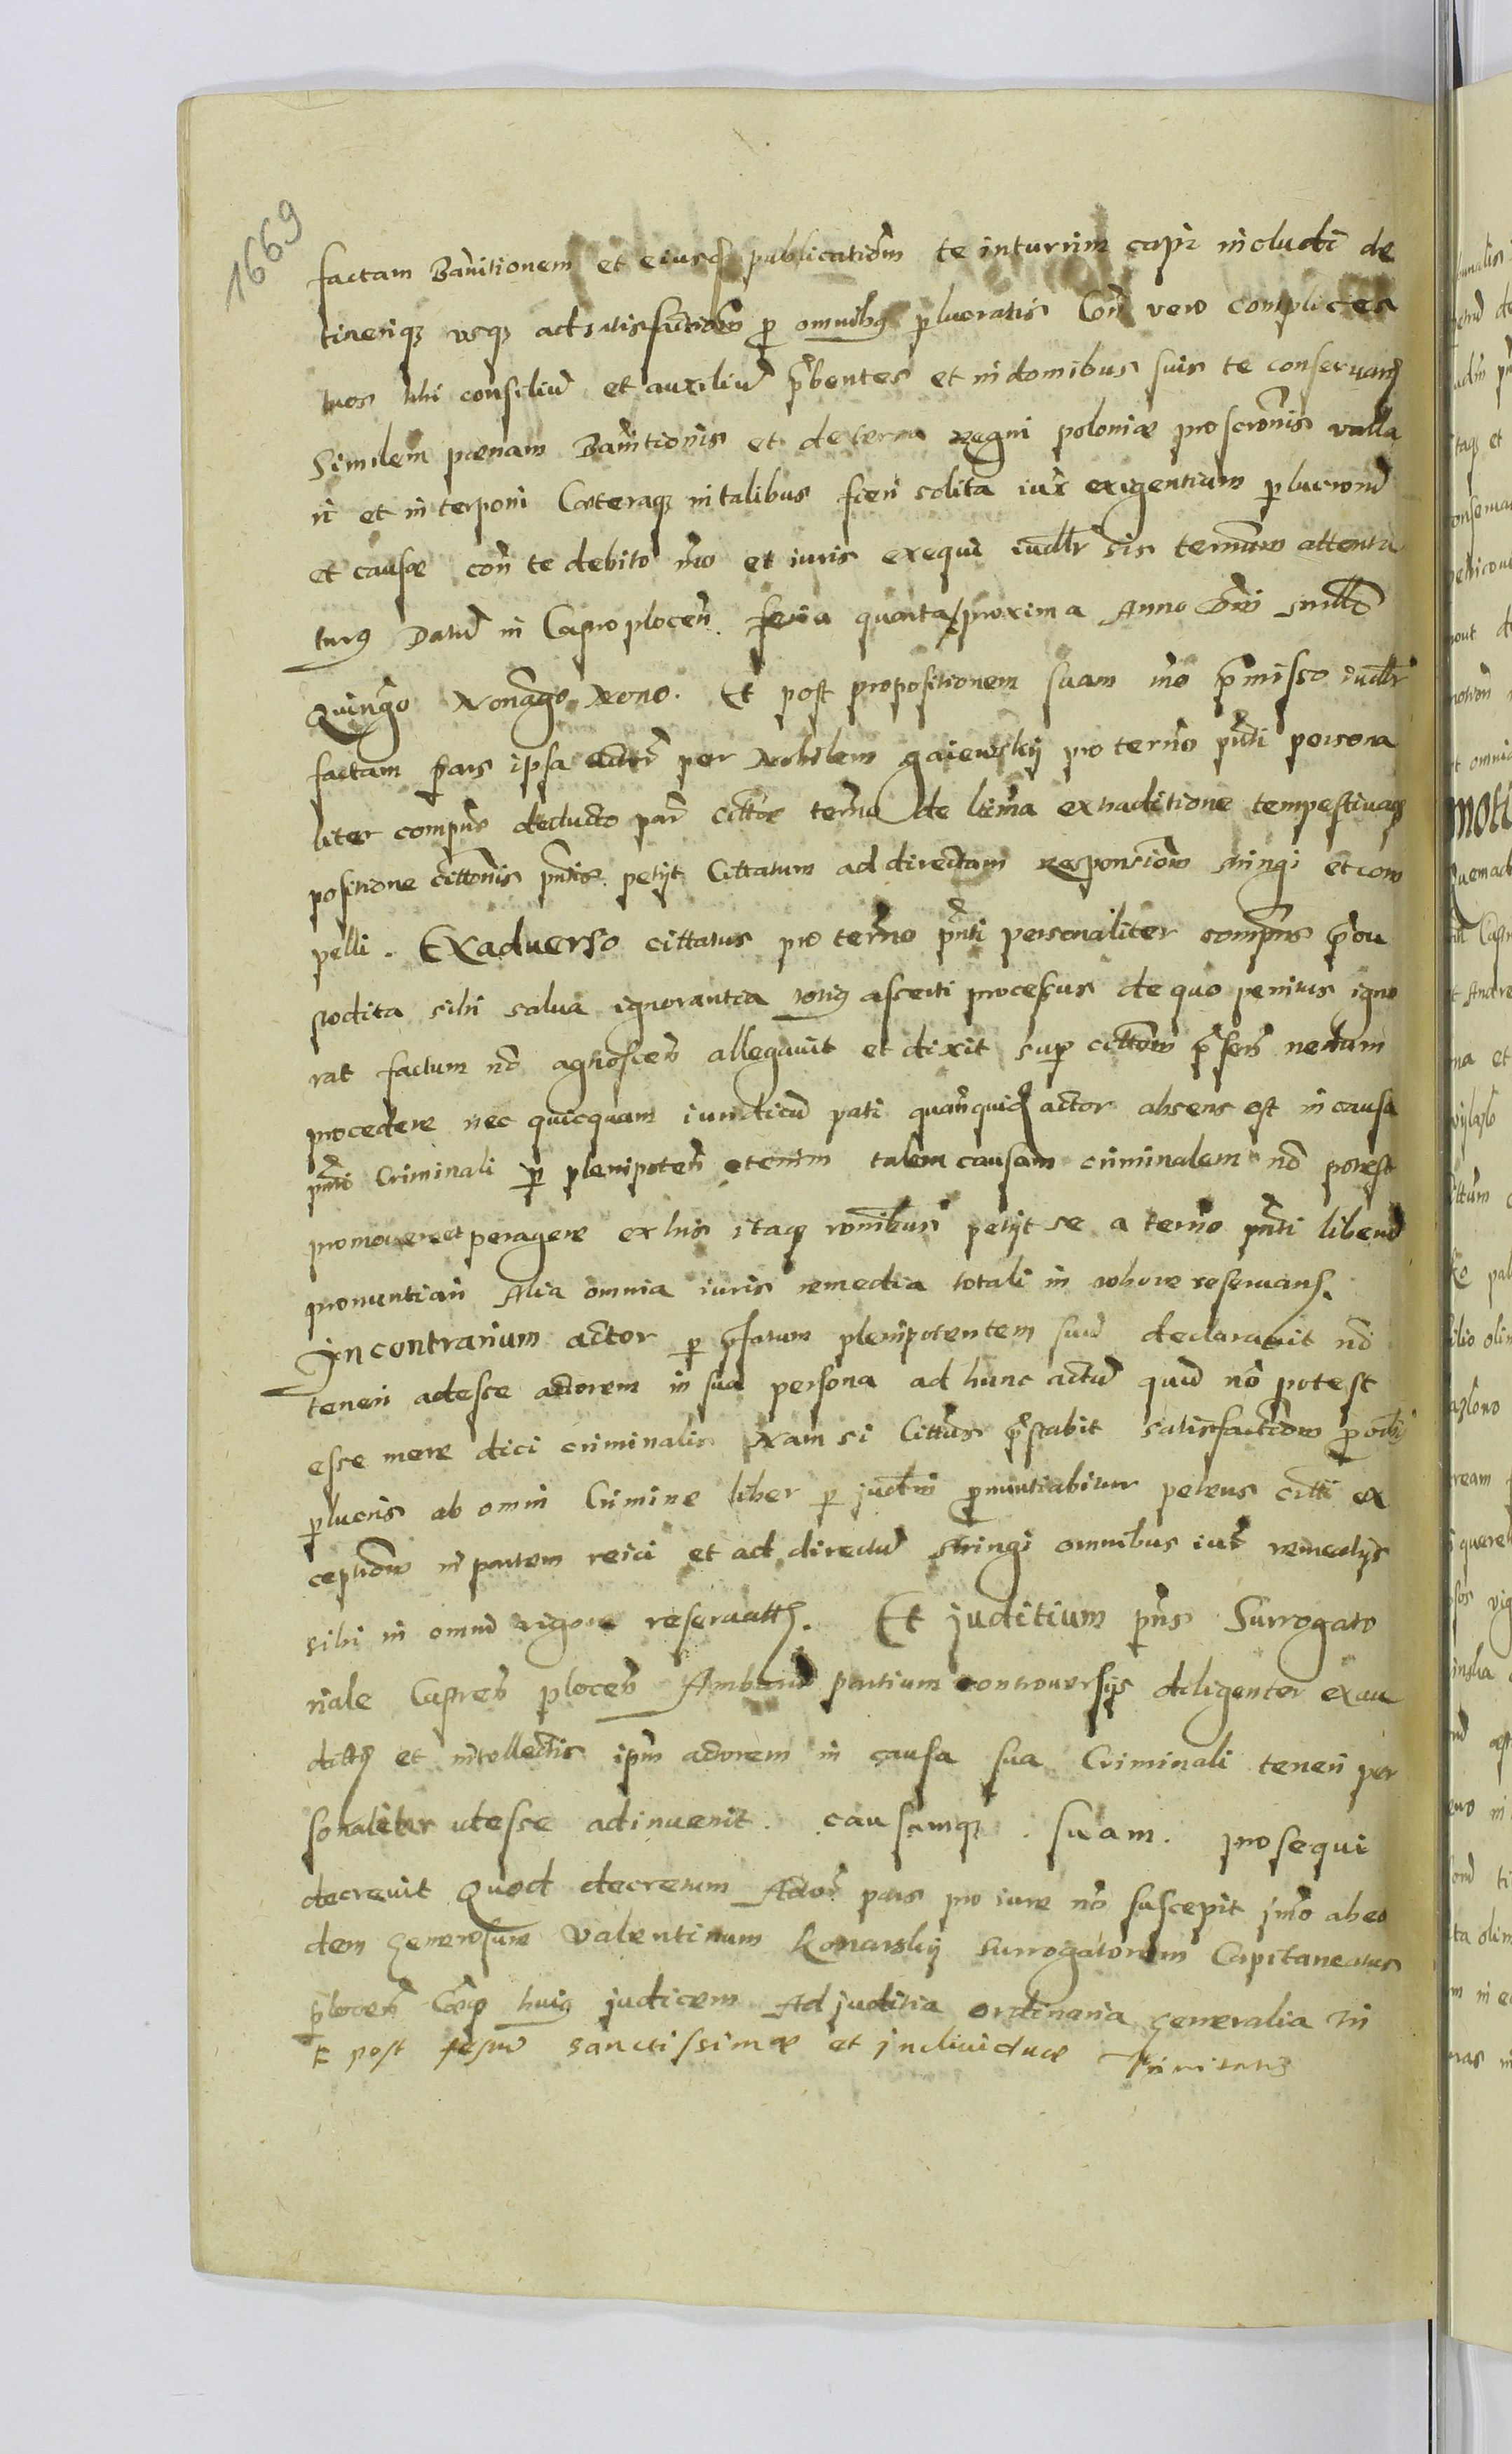 1669
factam Bannitionem et eiusd publicationem te inturrim capi includi de
tineriqz vsqz ad satisfactionem p omnibus perlucratis Con vero complices
tuos tibi consiliu et auxiliu pbentes et in domibus suis te conseruan
Similem pœnam Bannitionis et de terra regni poloniæ proscronis valla
ri et interponi Cæteraqz in talibus fieri solita iur exigentium plucrond
et causæ con te debito mo et iuris exequi iudlr sis terminum attentu
turus Datu in Castro plocen feria quarta proxima Anno Dni mill
Quingo Nonago Nono. Et post propositionem suam mo pmisso iudlr
factam Pars ipsa actor per Nobilem gaiewskÿ pro termo pnti persona
liter compns deducto par citto termo de lima extraditione tempestivaqz
positione cittonis pntis petijt Cittatum ad directam responsionem stringi et com
pelli. Ex aduerso cittatus pro termo pnti personaliter compns prou
stodita sibi salua ignorantia totius asserti processus de quo penitus igno
rat factum no agnoscens allegauit et dixit sup cittom psen nedum
procedere nec quicquam iuridicu pati quanquid actor absens est in causa
pnti Criminali p plenipoten etenim talem causam criminalem no potest
promouere et peragere ex his itaqz ronibus petijt se a termo pnti liberu
pronuntiari Alia omnia iuris remedia totali in robore reseruans.
In contrarium actor p pfatum plenipotentem suu declarauit no
teneri adesse actorem in sua persona ad hunc actu quu no potest
esse mere dici criminalis Nam si Cittus pstabit satisfactionem p oibus
plucris ab omni Crimine liber p judm pnuntiabitur petens citti ex
ceptiom in partem reici et ad directu stringi omnibus iur remedijs
sibi in omni rigore reseruatt. Et juditium pns Surrogato
riale Castren plocen Ambaru partium controuersijs diligenter exau
ditt et intellectis ipm actorem in causa sua Criminali teneri per
sonaliter adesse adinuenit. causamqz suam. prosequi
decreuit Quod decretum Actor pars pro iure no suscepit imo ab eo
dem generosum Valentinum Konarskÿ Surrogatorem Capitaneatus
plocen huius judicem Ad juditia ordinaria generalia in
post festu sanctissimæ et indiuiduæ Trinitatis